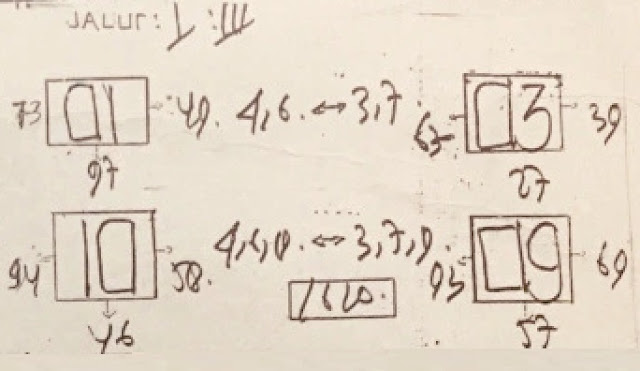 JALUR: I : III
73 01 49. 4,6. ↔ 3,7. 63 03 39
97 27
94 10 58. 4,6,0. ↔ 3,7,9. 93 09 69
46 1620. 57